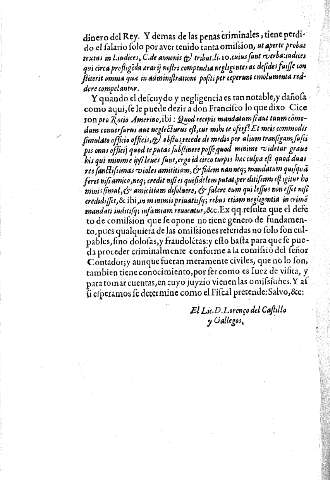 dinero del Rey. Y demas de las penas criminales, tiene perdi-
do el salario solo por aver tenido tanta omision, ut aperte probat
textus in l. iudices, C. de annonis & tribut. li. 10. cuius sunt verba: iudices
qui circa nostri compendia negligentes ac desides fuisse con
stiterit omnia quæ in administratione positi perceperunt emolumenta red-
dere compellantur.
Y quando el descuydo y negligencia es tan notable, y dañosa
como aqui, se le puede dezir a don Francisco lo que dixo Cice
ron pro Rosio Amerino, ibi: Quod recepis mandatum si aut tuum cõmo-
dum conversurus aut neglecturus est, cur mihi te offers? Et meis commodis
simulato officio officis, & obstas; recede de medio per alium transigam, susci
pis onus officij quod te putas substinere posse, quod minime videtur graue
his qui minime ipsi leues sunt, ergo id circo turpis hæc culpa est quod duas
res sanctissimas violat amicitiam, & fidem nam neq; mandatum quisquã
feret nisi amico, neq; credit nisi ei quem fidelem putat, perdidissimi est igitur ho
minis simul, & amicitiam disoluere, & fallere eum qui lesus non esset nisi
credidisset, & ibi, in minimis priuatisq; rebus etiam negligentia in crimẽ
mandati iuditiũq; infamiam reuocatur, &c. Ex qq resulta que el defe
to de comission que se opone no tiene genero de fundamen-
to, pues qualquiera de las omissiones referidas no solo son cul-
pables, sino dolosas, y fraudolẽtas; y esto basta para que se pue-
da proceder criminalmente conforme a la comissiõ del señor
Contador; y aunque fueran meramente civiles, que no lo son,
tambien tiene conocimiento, por ser como es Iuez de visita, y
para tomar cuentas, en cuyo juyzio vienen las omissiones. Y as
si esperamos se determine como el Fiscal pretende: Salvo, &c.
El Lic. D. Lorenço del Castillo
y Gallegos.